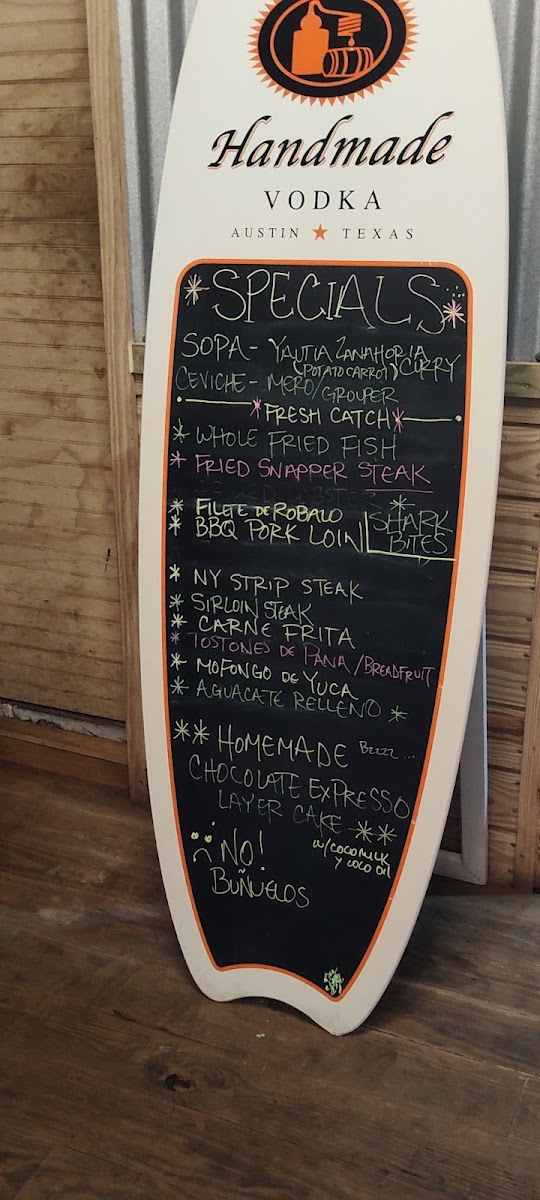 Handmade
VODKA
AUSTIN ★ TEXAS
* SPECIALS *
SOPA - YAUTIA ZANAHORIA
(POTATO CARROT) CURRY
CEVICHE - MERO/GROUPER
*FRESH CATCH*
* WHOLE FRIED FISH
* FRIED SNAPPER STEAK
* FILETE DE ROBALO
* BBQ PORK LOIN
* SHARK
BITES
* NY STRIP STEAK
* SIRLOIN STEAK
* CARNE FRITA
* TOSTONES DE PANA/BREADFRUIT
* MOFONGO DE YUCA
* AGUACATE RELLENO *
** HOMEMADE Bzzz...
CHOCOLATE EXPRESSO
LAYER CAKE **
w/COCO MILK
y COCO OIL
NO!
BUÑUELOS